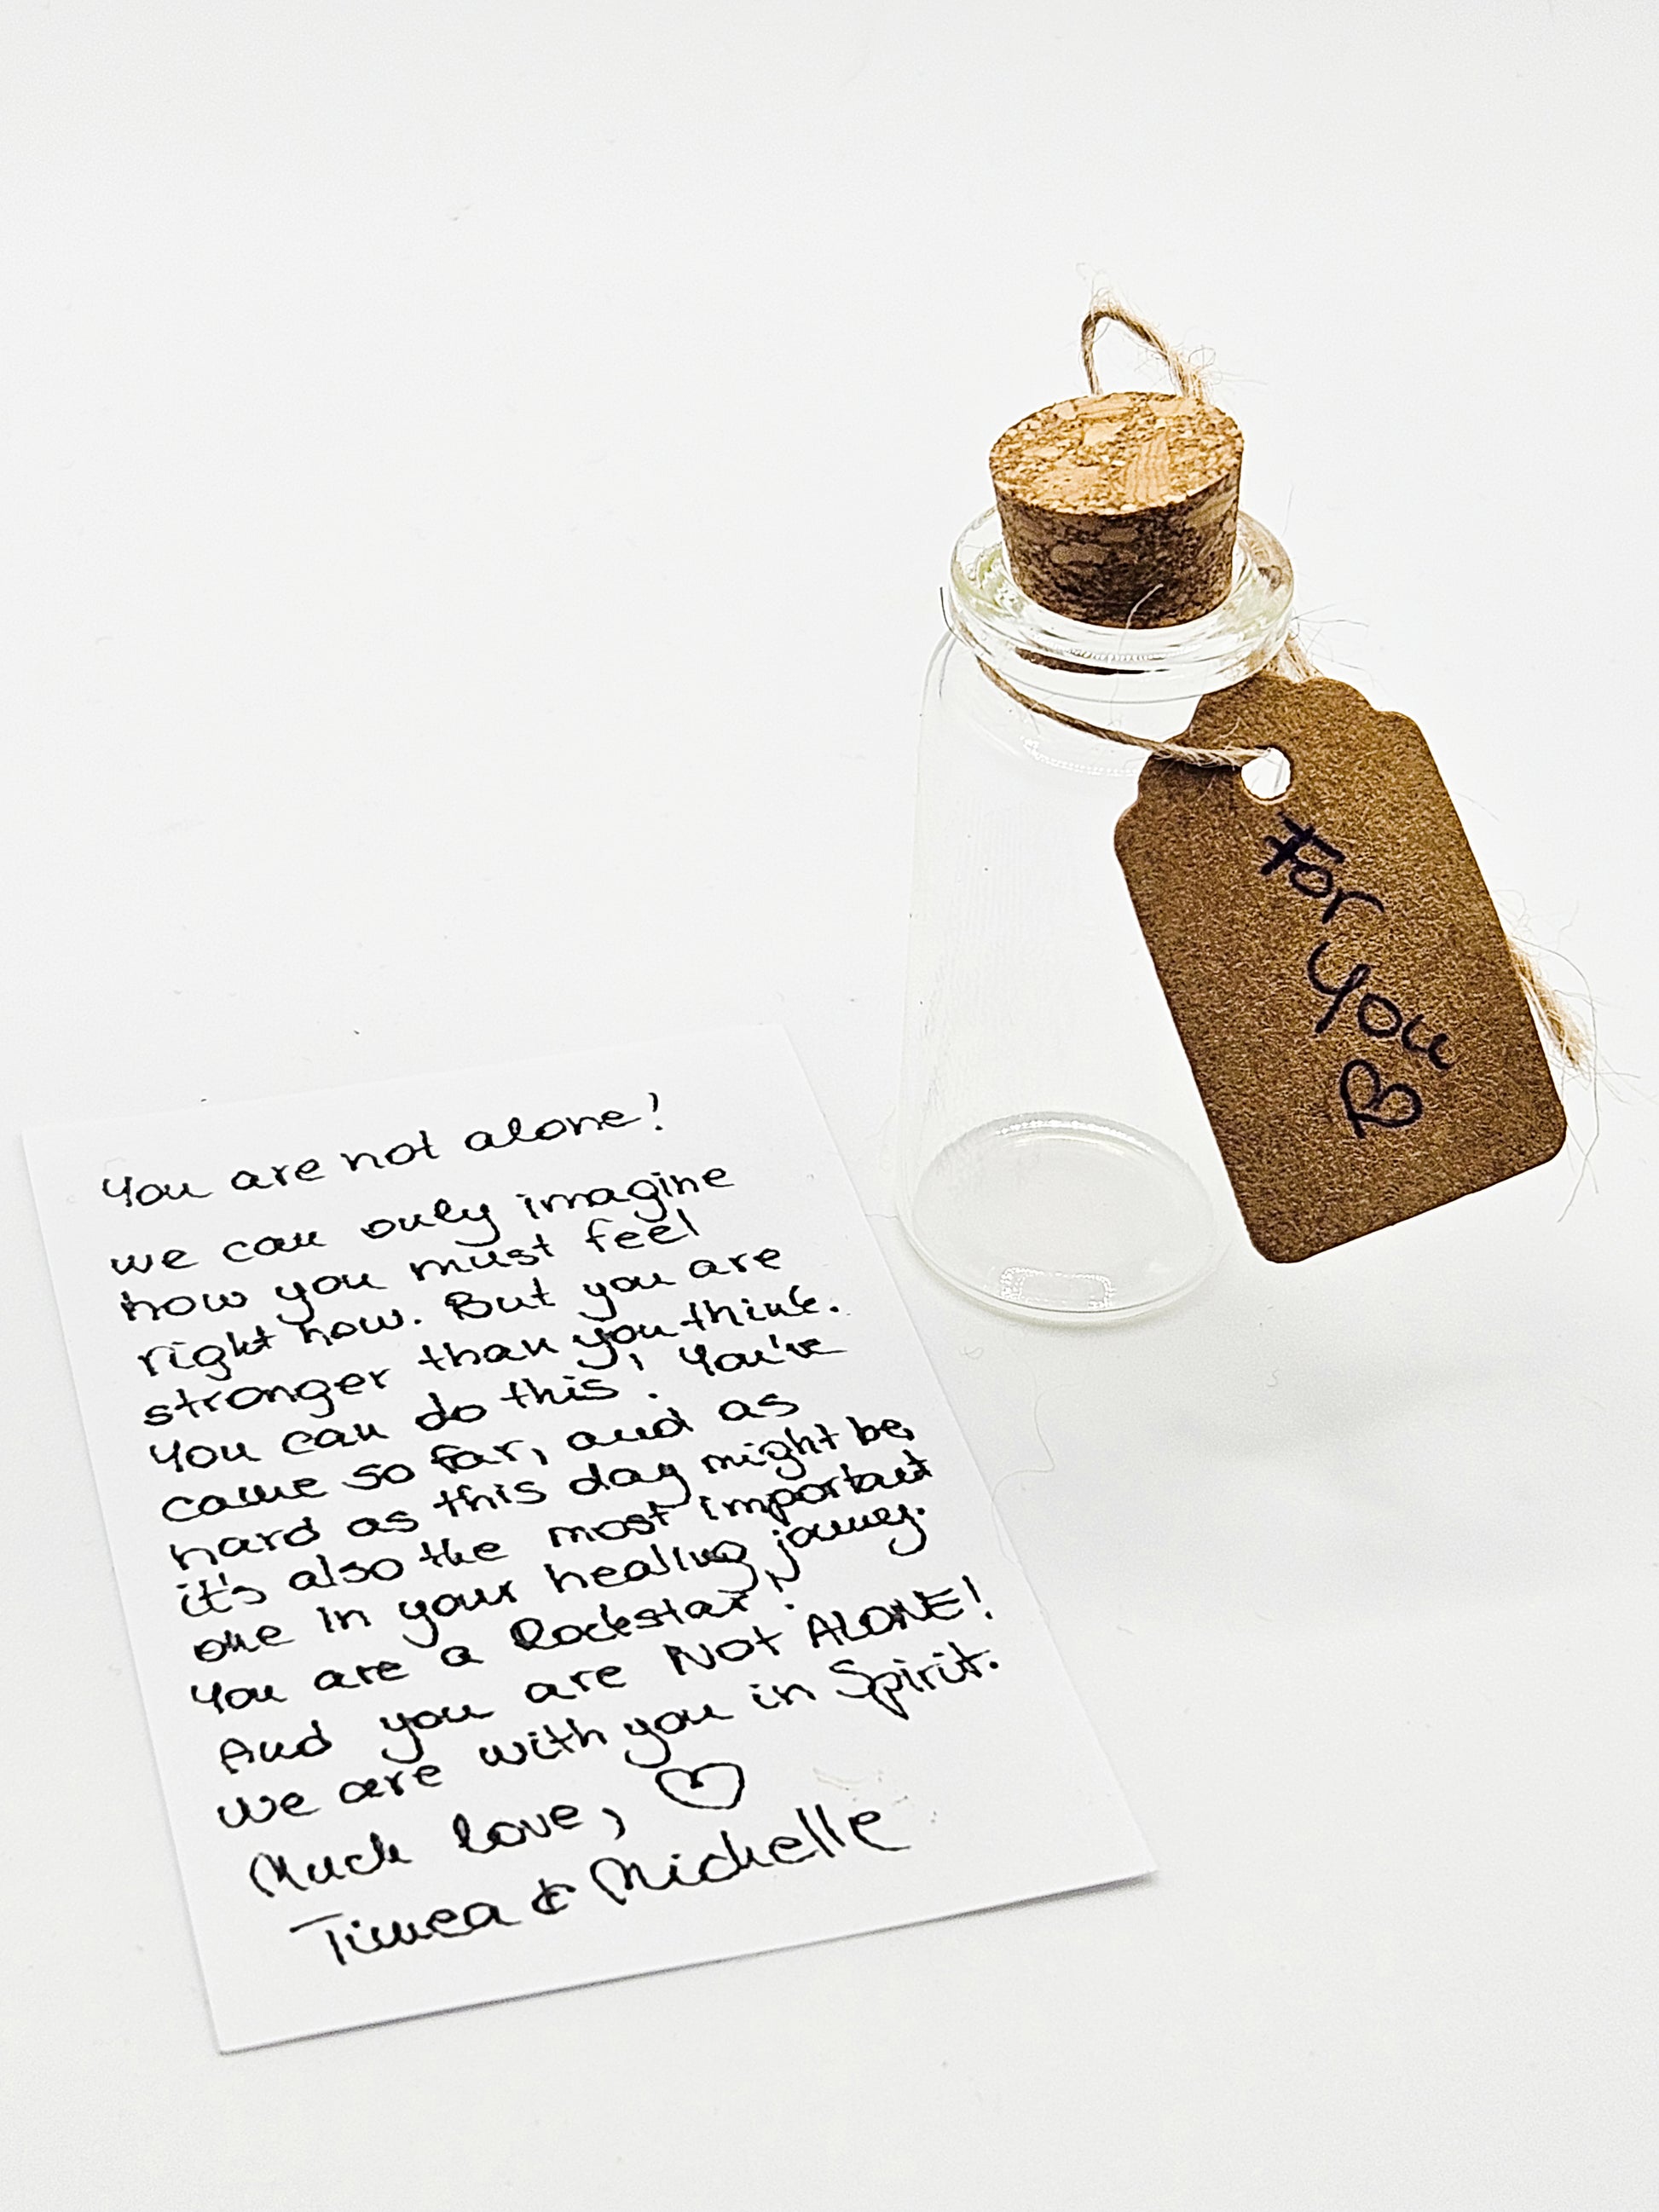 You are not alone!
We can only imagine
how you must feel
right now. But you are
stronger than you think.
You can do this! You've
came so far, and as
hard as this day might be,
it's also the most important
one in your healing journey.
You are a Rockstar!
And you are NOT ALONE!
We are with you in Spirit.
Much love, ♡
Timea & Michelle
For
You
♡